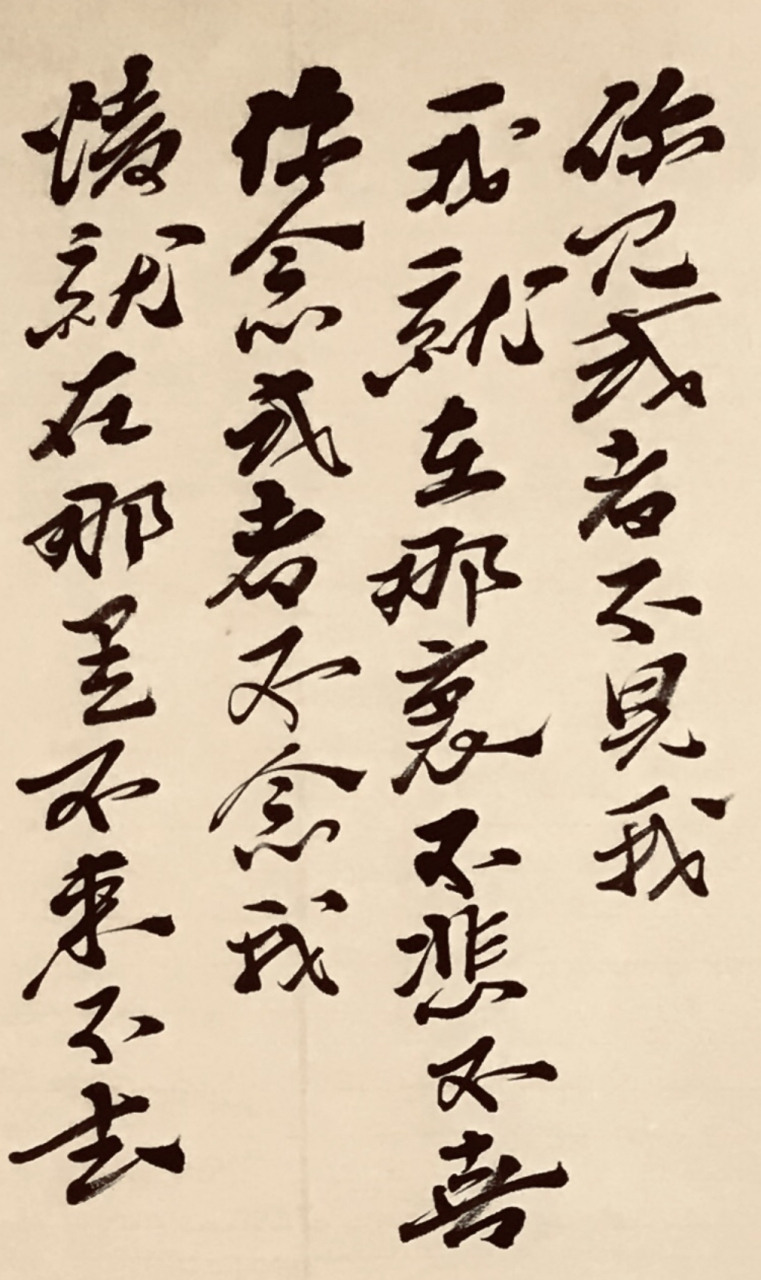 你见或者不見我
我就在那裏不悲不喜
你念或者不念我
情就在那里不來不去